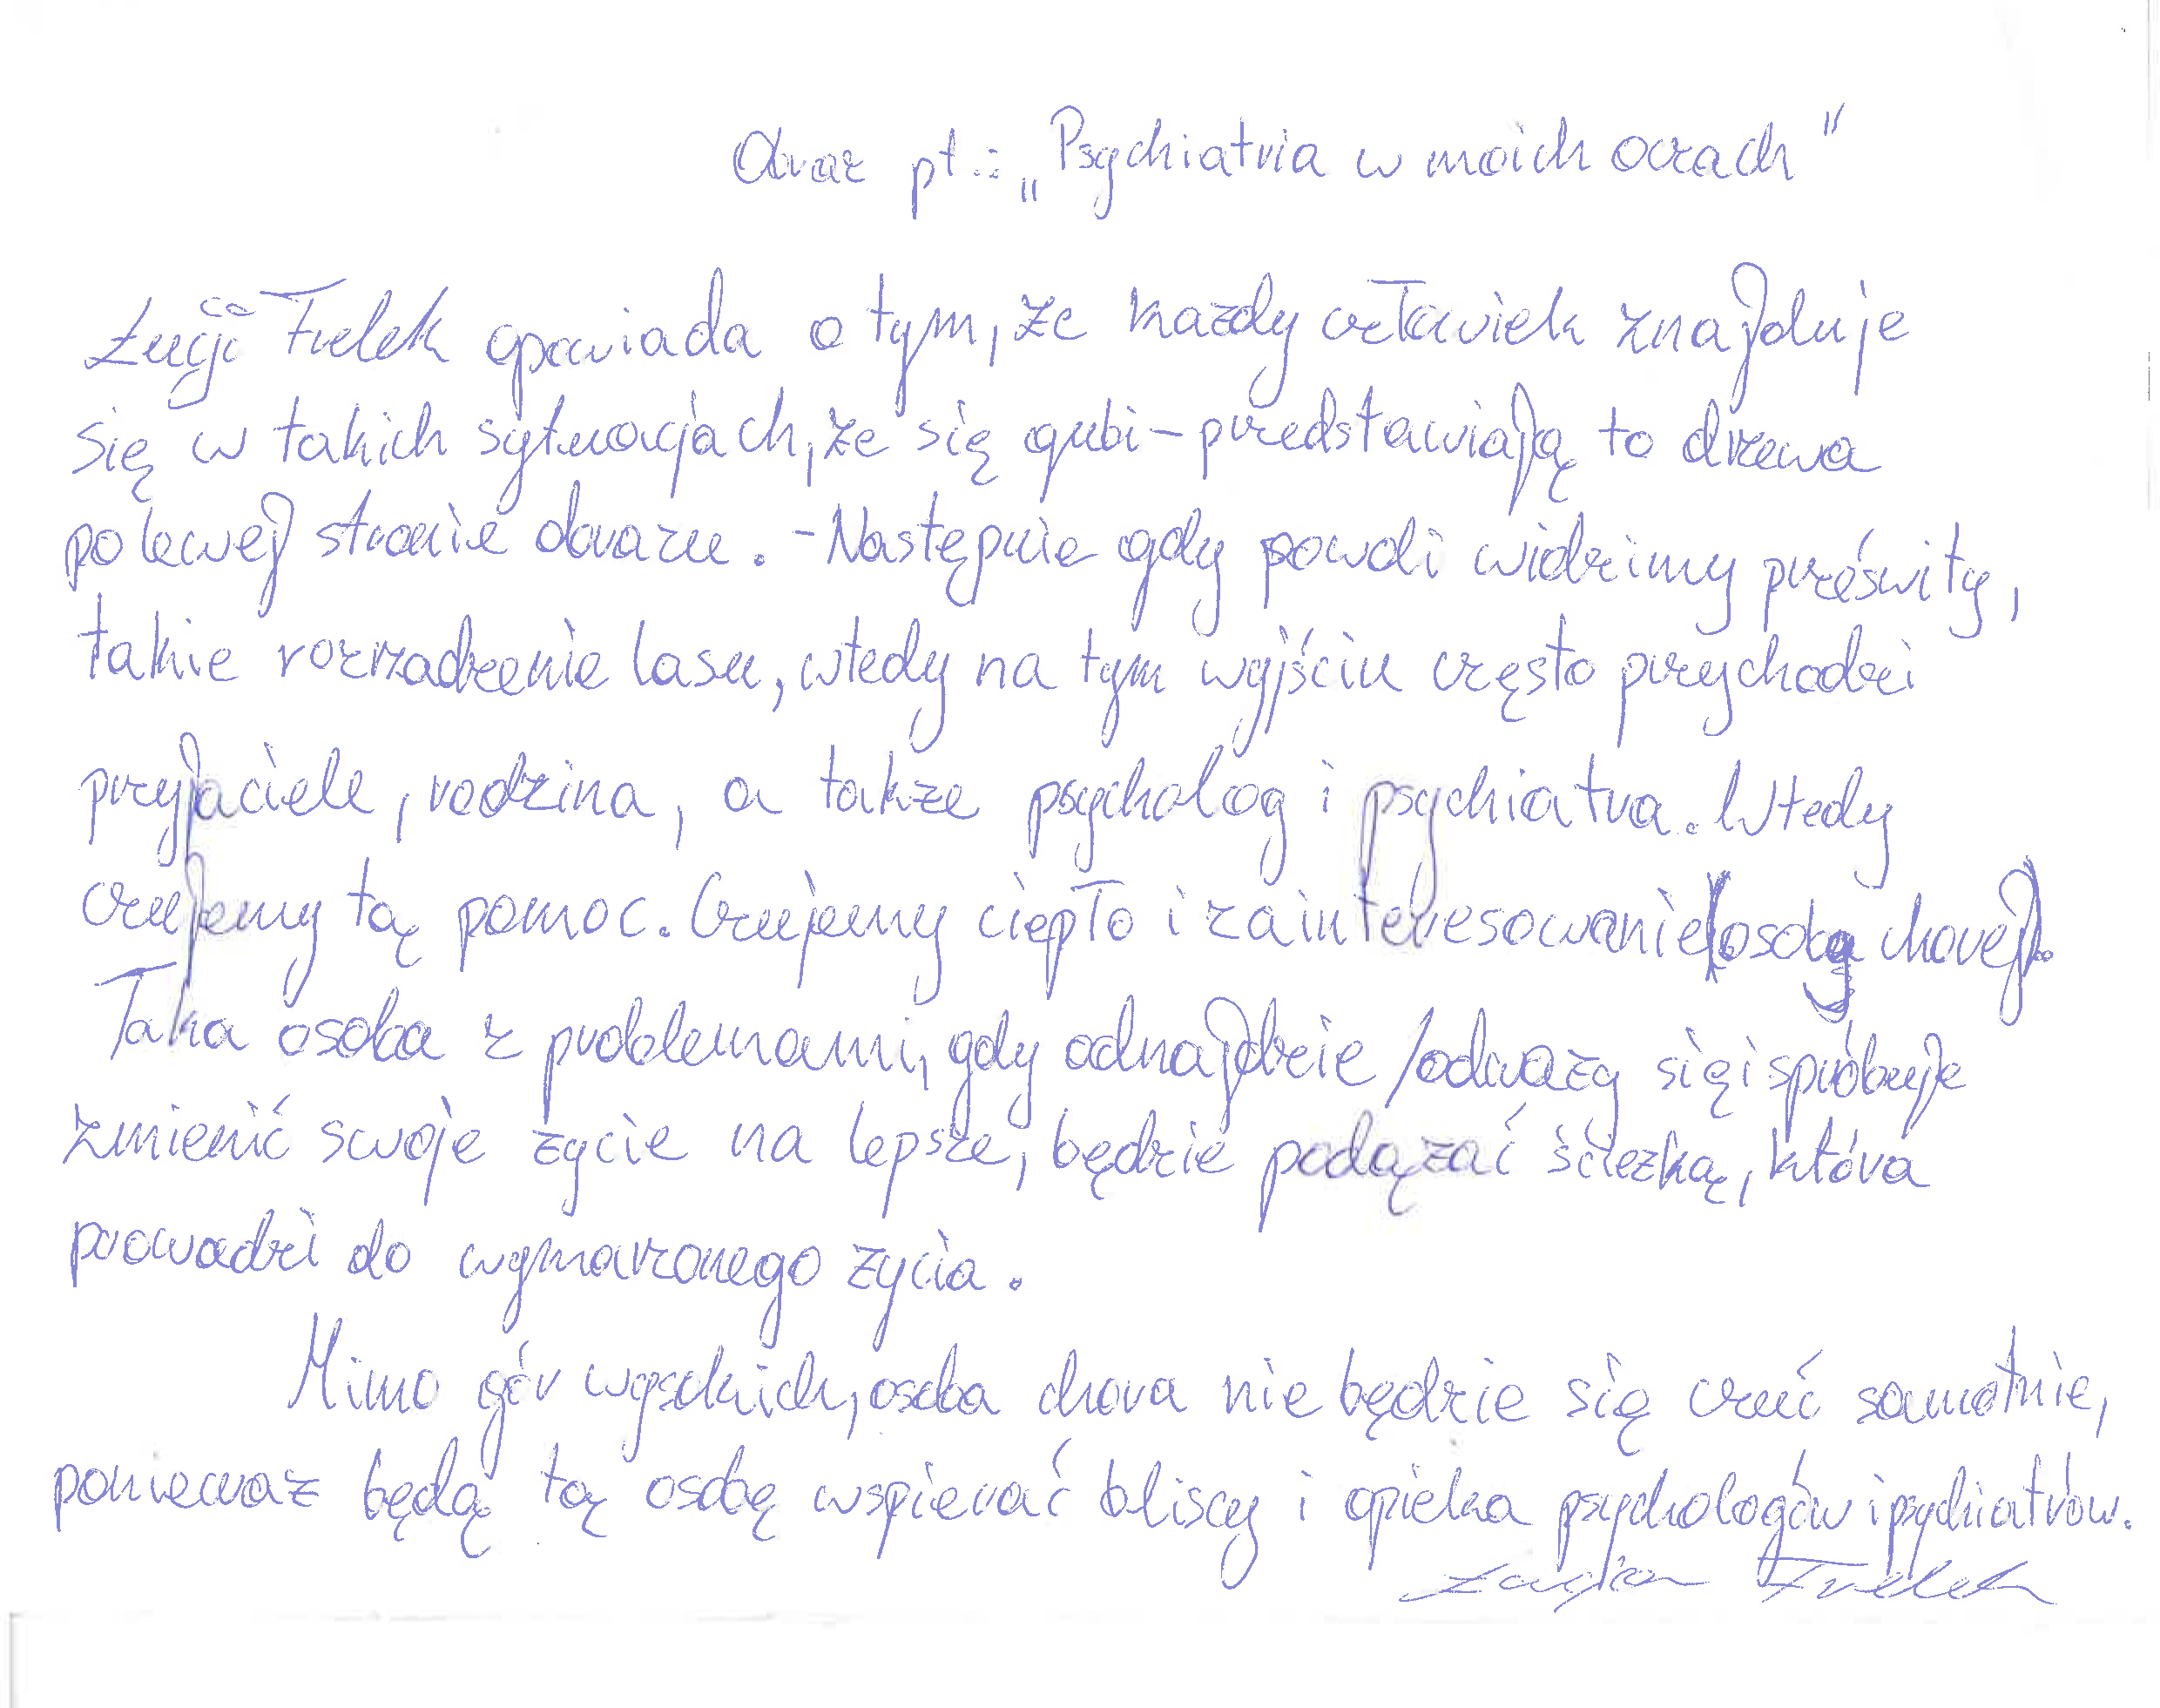 Obraz pt.: „Psychiatria w moich oczach"
Łucji Frelek opowiada o tym, że każdy człowiek znajduje
się w takich sytuacjach, że się gubi - przedstawiają to drzewa
po lewej stronie obrazu. - Następnie gdy powoli widzimy prześwity,
takie rozrzadzenie lasu, wtedy na tym wyjściu często przychodzi
przyjaciele, rodzina, a także psycholog i psychiatra. Wtedy
czujemy tą pomoc. Czujemy ciepło i zainteresowanie (osobą chorej).
Taka osoba z problemami, gdy odnajdzie /odważy się i spróbuje
zmienić swoje życie na lepsze, będzie podążać ścieżką, która
prowadzi do wymarzonego życia.
Mimo gór wysokich, osoba chora nie będzie się czuć samotnie,
ponieważ będą tą osobę wspierać bliscy i opieka psychologów i psychiatrów.
Łucja Frelek